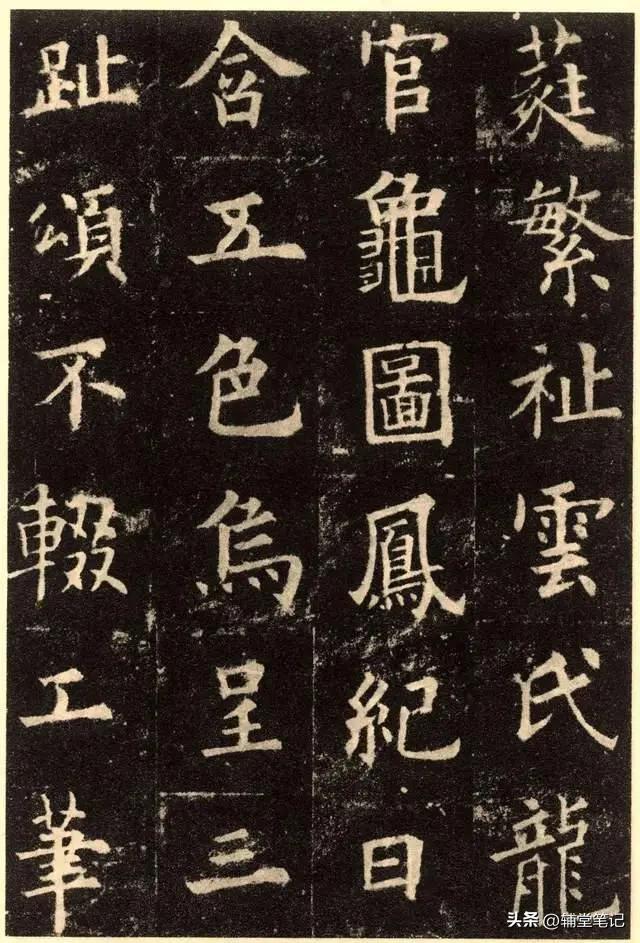 蕤繁祉雲氏龍
官龜圖鳳紀日
含五色烏呈三
趾頌不輟工筆
头条 @辅堂笔记